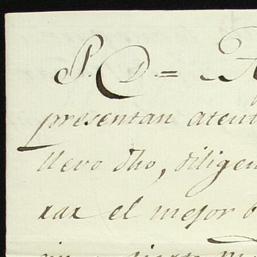 P. D. =
presentan atent
llevo dho, diligen
rar el mejor